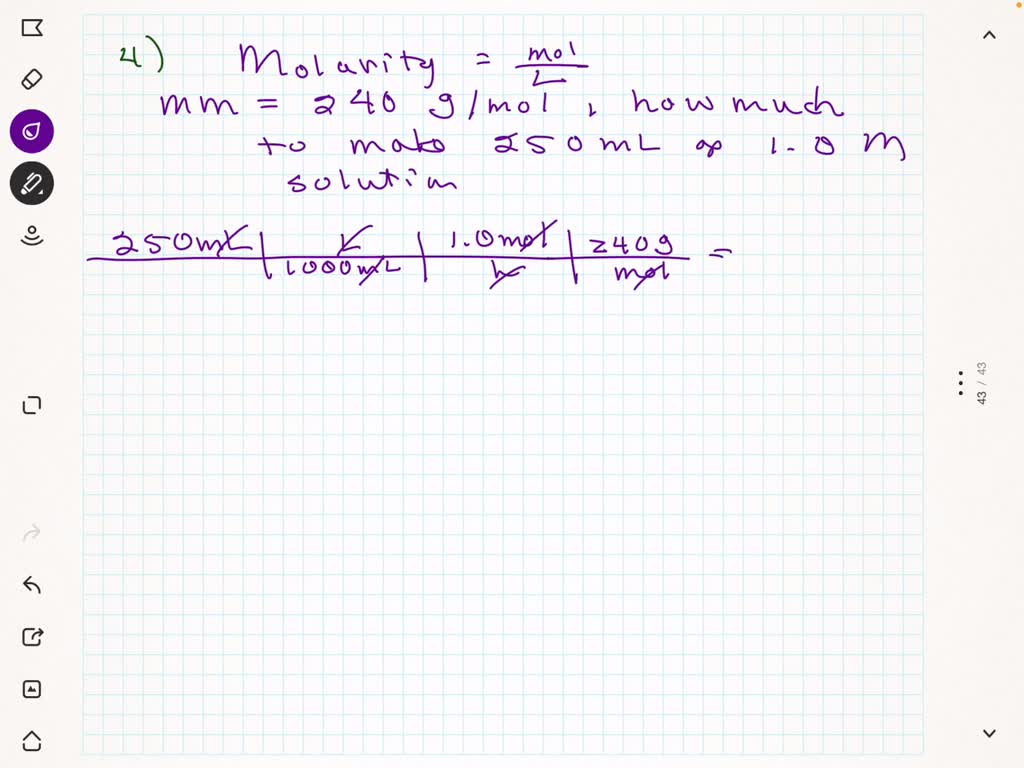 4) Molarity = mol/L
mm = 240 g/mol, how much
to make 250mL of 1.0 M
solution
250mL | L | 1.0mol | 240g =
1000mL | L | mol
43 / 43